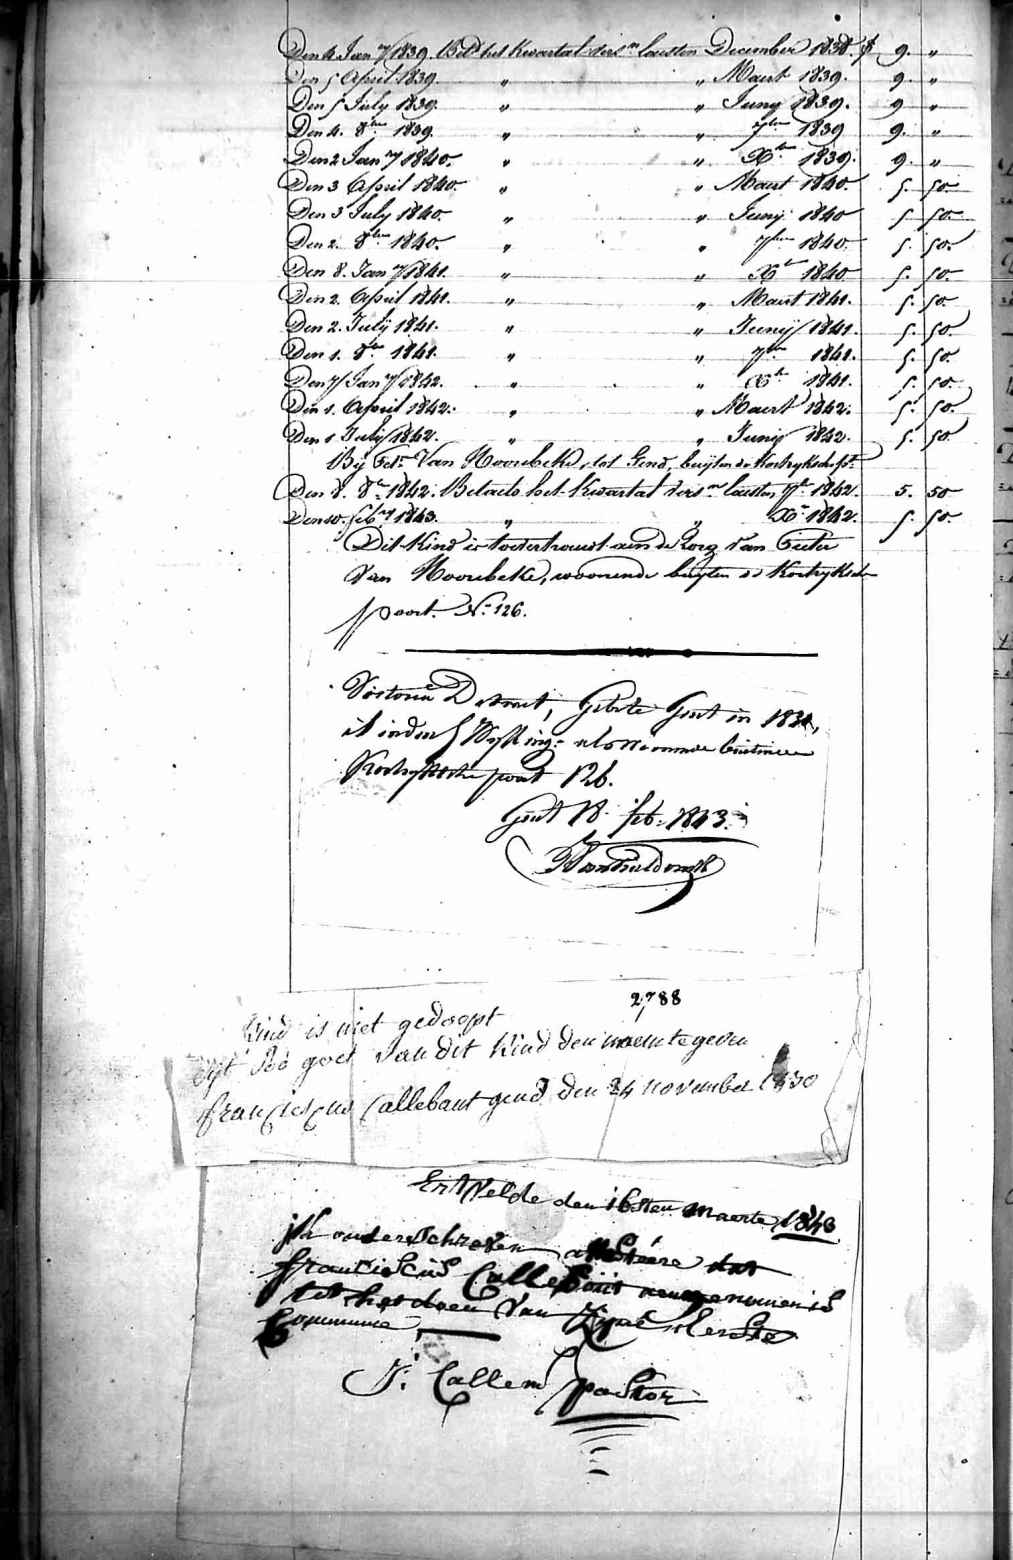 Den 4 Jan ry 1839. Bet.d het Kwartaal vers.n laesten December 1838. f 9. "
Den 5 April 1839. " " Maert 1839. 9. "
Den 5 July 1839. " " Juny 1839. 9 "
Den 4. 8ber 1839. " " 7ber 1839 9. "
Den 2 Jan ry 1840. " " Xber 1839. 9. "
Den 3 April 1840. " " Maert 1840. 5. 50.
Den 3 July 1840. " " Juny 1840 5 50.
Den 2. 8ber 1840. " " 7ber 1840. 5. 50.
Den 8. Jan ry 1841. " " Xbr 1840 5. 50.
Den 2. April 1841. " " Maert 1841. 5. 50.
Den 2. July 1841. " " Junij 1841. 5. 50.
Den 1. 8br 1841. " " 7br 1841. 5. 50.
Den 7 Jan ry 1842. " " Xbr 1841. 5. 50.
Den 1. April 1842. " " Maert 1842. 5. 50.
Den 1 July 1842. " " Junij 1842. 5. 50.
Bij Piet.r Van Hoorebeke, tot Gend, buijten de Kortryksche pt.
Den 8. 8br 1842. Betaelt het Kwartaal vers.n laesten 7br 1842. 5. 50
Den 10. feb.ry 1843. " " Xbr 1842. 5. 50.
Dit Kind is toevertrouwt aen de Zorg van Pieter
Van Hoorebeke, woonende buyten de Kortryksche
poort. N.o 126.
Victoria Gent in 183
woonende buiten
Kortryksche poort 126.
Gent 18 feb. 1843.
2788
Kind is niet gedoopt
goet van dit Kind den naem te geven
franciescus Callebaut gend den 24 november 1830
Ertvelde den 16sten Maerte 1843
ik onderschreven attestére dat
franciscus Callebaut aengenomen is
tot het doen van zyne eerste
Communie
J. Callem pastor